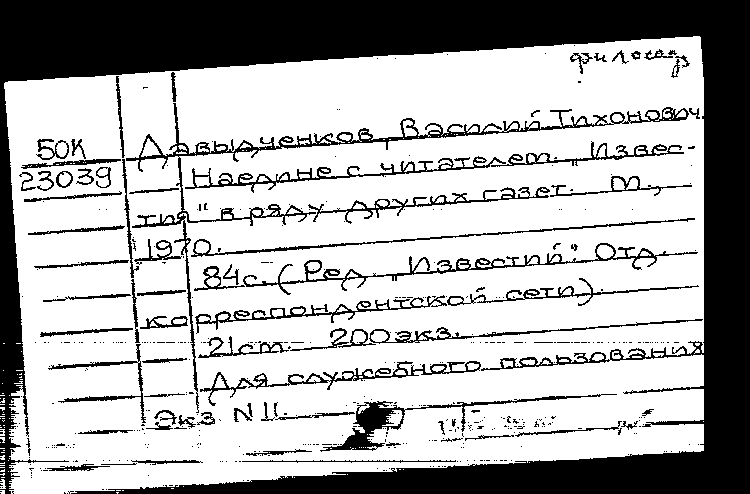 филос
50К Давыдченков, Василий Тихонович.
23039 Наедине с читателем. „Извес-
тия" в ряду других газет. М.,
1970.
84с. (Ред. „Известий". Отд.
корреспондентской сети).
21см. 200экз.
Для служебного пользования
Экз N 11.